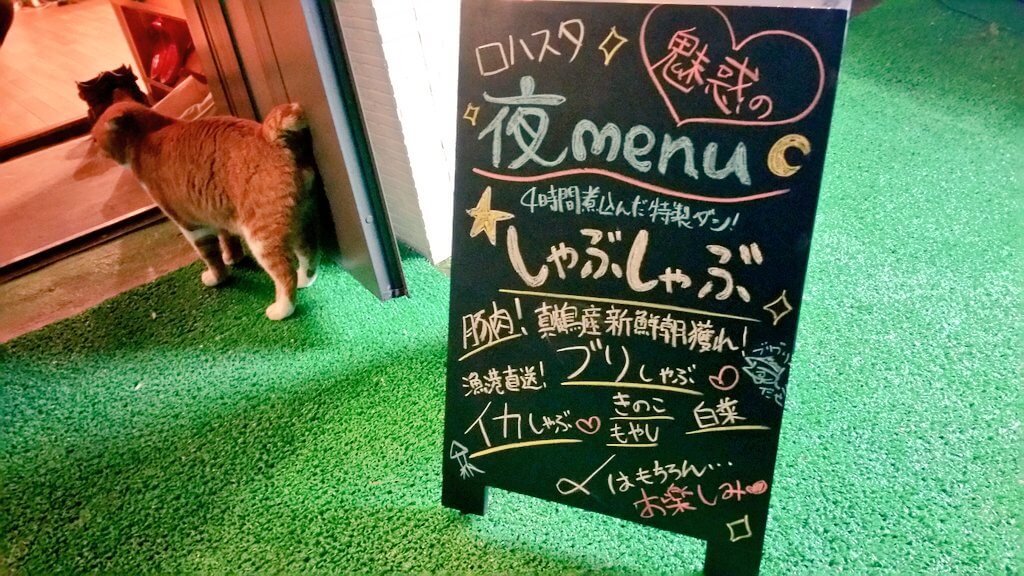 ロハスタ
魅惑の
夜menu
4時間煮込んだ特製ダシ!
しゃぶしゃぶ
豚肉! 真鶴産新鮮朝獲れ!
漁港直送! ブリしゃぶ
イカしゃぶ きのこ 白菜
もやし
〆はもちろん…
お楽しみ